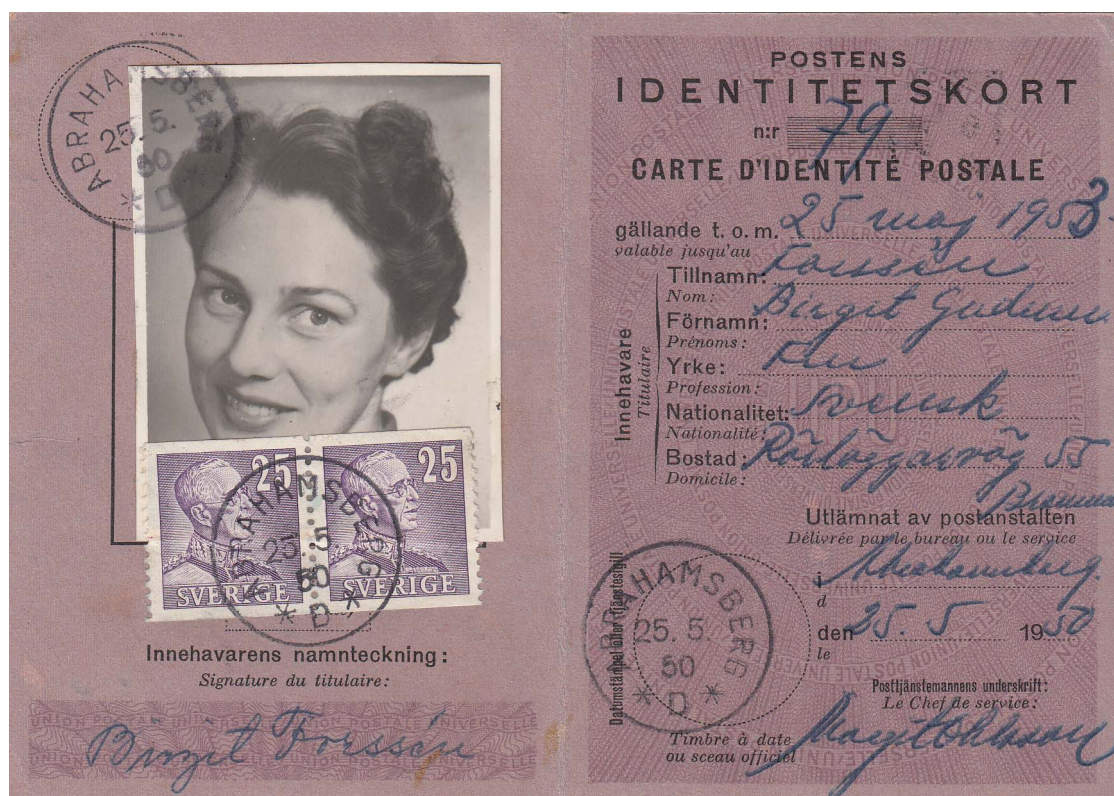 ABRAHAMSBERG
25. 5.
50
* D *
25 25
SVERIGE SVERIGE
ABRAHAMSBERG
25 5
50
* D *
Innehavarens namnteckning:
Signature du titulaire:
UNION POSTALE UNIVERSELLE
Birgit Forssén
POSTENS
IDENTITETSKORT
n:r 79
CARTE D'IDENTITÉ POSTALE
gällande t. o. m. 25 maj 1953
valable jusqu'au
Innehavare
Titulaire
Tillnamn: Forssén
Nom:
Förnamn: Birgit Gudrun
Prénoms:
Yrke: Fru
Profession:
Nationalitet: Svensk
Nationalité:
Bostad: 55
Domicile:
Utlämnat av postanstalten
Délivrée par le bureau ou le service
i Abrahamsberg.
d
den 25. 5 1950
le
Datumstämpel eller tjänstesigill
ABRAHAMSBERG
25. 5.
50
* D *
Posttjänstemannens underskrift:
Le Chef de service:
Timbre à date
ou sceau officiel
Margit Ohlsson